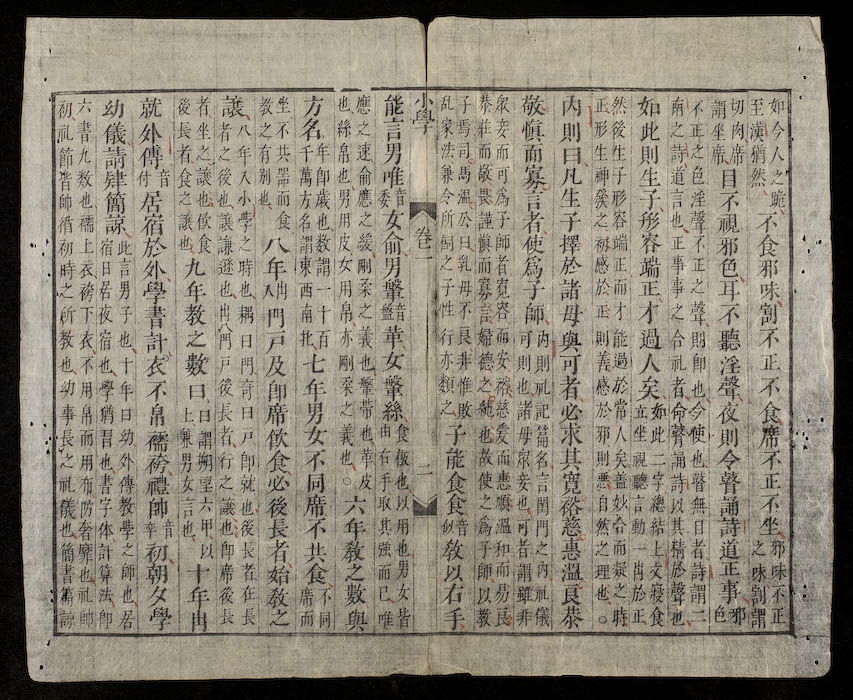 如今人之跪
至漢猶然
不食邪味割不正不食席不正不坐
邪味不正
之味割謂
切肉席
謂坐席
目不視邪色耳不聽淫聲夜則令瞽誦詩道正事
邪
色
不正之色淫聲不正之聲則即也令使也瞽無目者詩謂二
南之詩道言也正事事之合礼者命瞽誦詩以其精於聲也
如此則生子形容端正才過人矣
如此二字總結上文寢食
立坐視聽言動一出於正
然後生子形容端正而才能過於常人矣蓋妙合而凝之時
正形生神發之初感於正則善感於邪則惡自然之理也○
內則曰凡生子擇於諸母與可者必求其寬裕慈惠溫良恭
敬慎而寡言者使爲子師
內則礼記篇名言閨門之內礼儀
可則也諸母眾妾也可者謂雖非
眾妾而可爲子師者寬容而安裕慈愛而惠順溫和而易良
恭莊而敬畏謹慎而寡言婦德之純也故使之爲子師以教
子焉司馬溫公曰乳母不良非惟敗
亂家法兼令所飼之子性行亦類之
子能食食
音
似
敎以右手
小學
卷一
二
能言男唯
音
委
女俞男鞶
音
盤
革女鞶絲
食飯也以用也男女皆
由右手取其強而已唯
應之速俞應之緩剛柔之義也鞶帶也革皮
也絲帛也男用皮女用帛亦剛柔之義也○
六年敎之數與
方名
年即歲也数謂一十百
千萬方名謂東西南北
七年男女不同席不共食
不同
席而
坐不共器而食
教之有別也
八年出入門戶及卽席飲食必後長者始敎之
讓
八年入小學之時也耦曰門奇曰戶卽就也後長者在長
者之後也讓謙遜也出入門戶後長者行之讓也卽席後長
者坐之讓也飲食
後長者食之讓也
九年教之數日
日謂朔望六甲以
上兼男女言也
十年出
就外傅
音
付
居宿於外學書計衣不帛襦袴禮帥
音
率
初朝夕學
幼儀請肄簡諒
此言男子也十年曰幼外傅教學之師也居
宿日居夜宿也學猶習也書字体計算法即
六書九數也襦上衣袴下衣不用帛而用布防奢靡也礼帥
初礼節皆帥循初時之所教也幼事長之礼儀也簡書篇諒